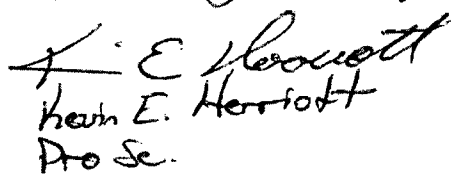 Kevin E Herriott
Kevin E. Herriott
Pro Se.